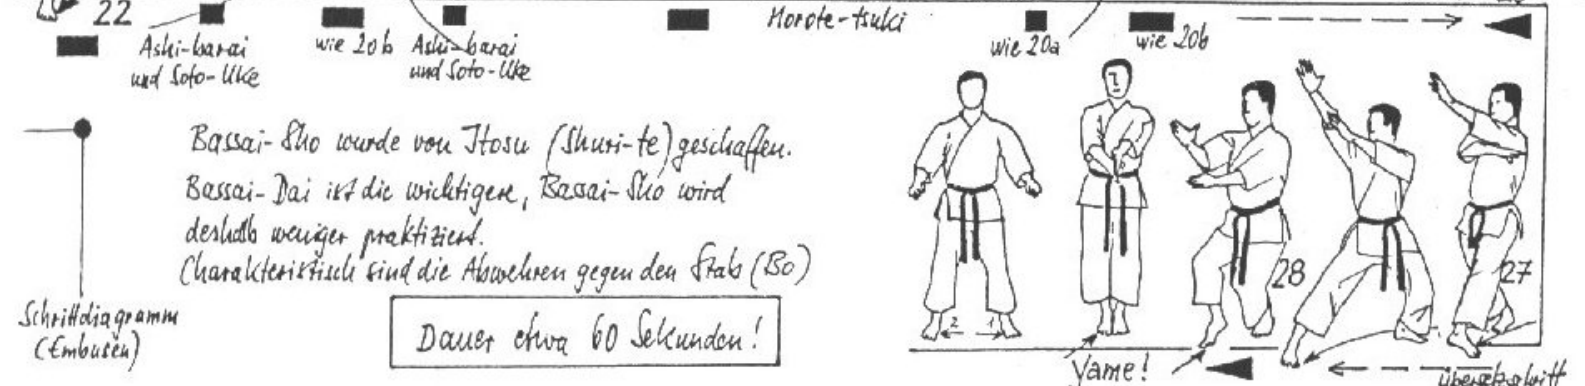 22
Ashi-barai
und Soto-Uke
wie 20b
Ashi-barai
und Soto-Uke
Morote-tsuki
wie 20a
wie 20b
Bassai-Sho wurde von Itosu (Shuri-te) geschaffen.
Bassai-Dai ist die wichtigere, Bassai-Sho wird
deshalb weniger praktiziert.
Charakteristisch sind die Abwehren gegen den Stab (Bo)
Schrittdiagramm
(Embusen)
Dauer etwa 60 Sekunden!
2 1
28
27
Yame!
Übersetzschritt